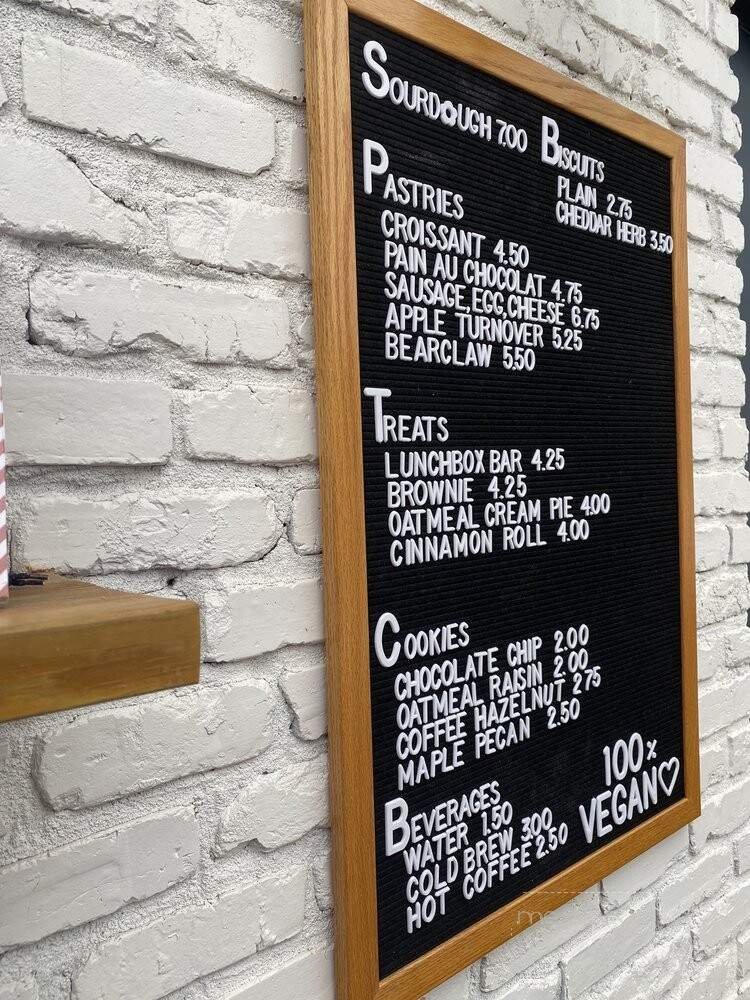 SOURDOUGH 7.00
BISCUITS
PLAIN 2.75
CHEDDAR HERB 3.50
PASTRIES
CROISSANT 4.50
PAIN AU CHOCOLAT 4.75
SAUSAGE,EGG,CHEESE 6.75
APPLE TURNOVER 5.25
BEARCLAW 5.50
TREATS
LUNCHBOX BAR 4.25
BROWNIE 4.25
OATMEAL CREAM PIE 4.00
CINNAMON ROLL 4.00
COOKIES
CHOCOLATE CHIP 2.00
OATMEAL RAISIN 2.00
COFFEE HAZELNUT 2 75
MAPLE PECAN 2.50
BEVERAGES
WATER 1.50
COLD BREW 3.00
HOT COFFEE 2.50
100%
VEGAN♡